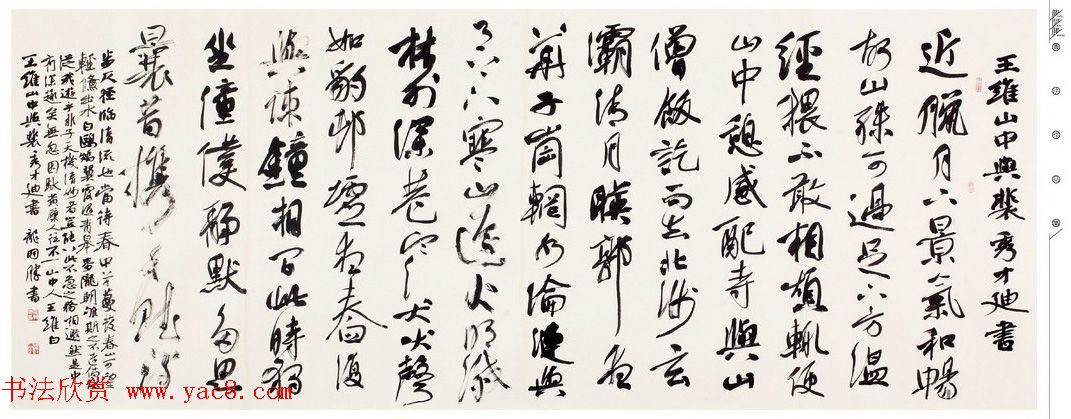 王維山中與裴秀才迪書
近臘月下景氣和暢
故山殊可過足下方溫
經猥不敢相煩輒便
山中憩感配寺與山
僧飯訖而去北涉玄
灞清月暎郭夜
華子崗輞水淪漣與
月上下寒山遠火明滅
林外深巷寒犬吠聲
如豹邨墟夜舂復
與疎鐘相間此時獨
坐僮僕靜默多思
曩昔携手賦詩
步仄徑臨清流也當待春中草蔓發春山可望
輕鯈出水白鷗矯翼露濕青皋麥隴朝雊斯之不遠儻能
從我遊乎非子天機清妙者豈能以此不急之務相邀然是中
有深趣矣無忽因馱黃檗人往不一山中人王維白
王維山中與裴秀才迪書 龍開勝書
书法欣赏 www.yac8.com